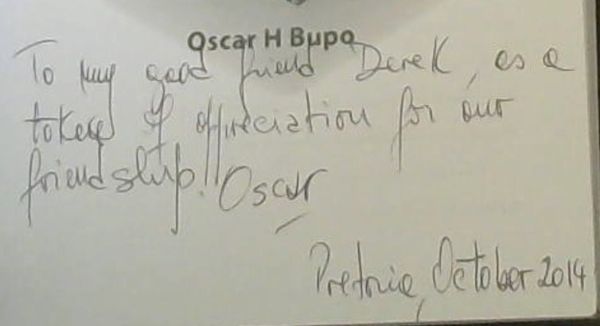 Oscar H Bupo
To my good friend Derek, as a
token of appreciation for our
friendship!! Oscar
Pretoria, October 2014